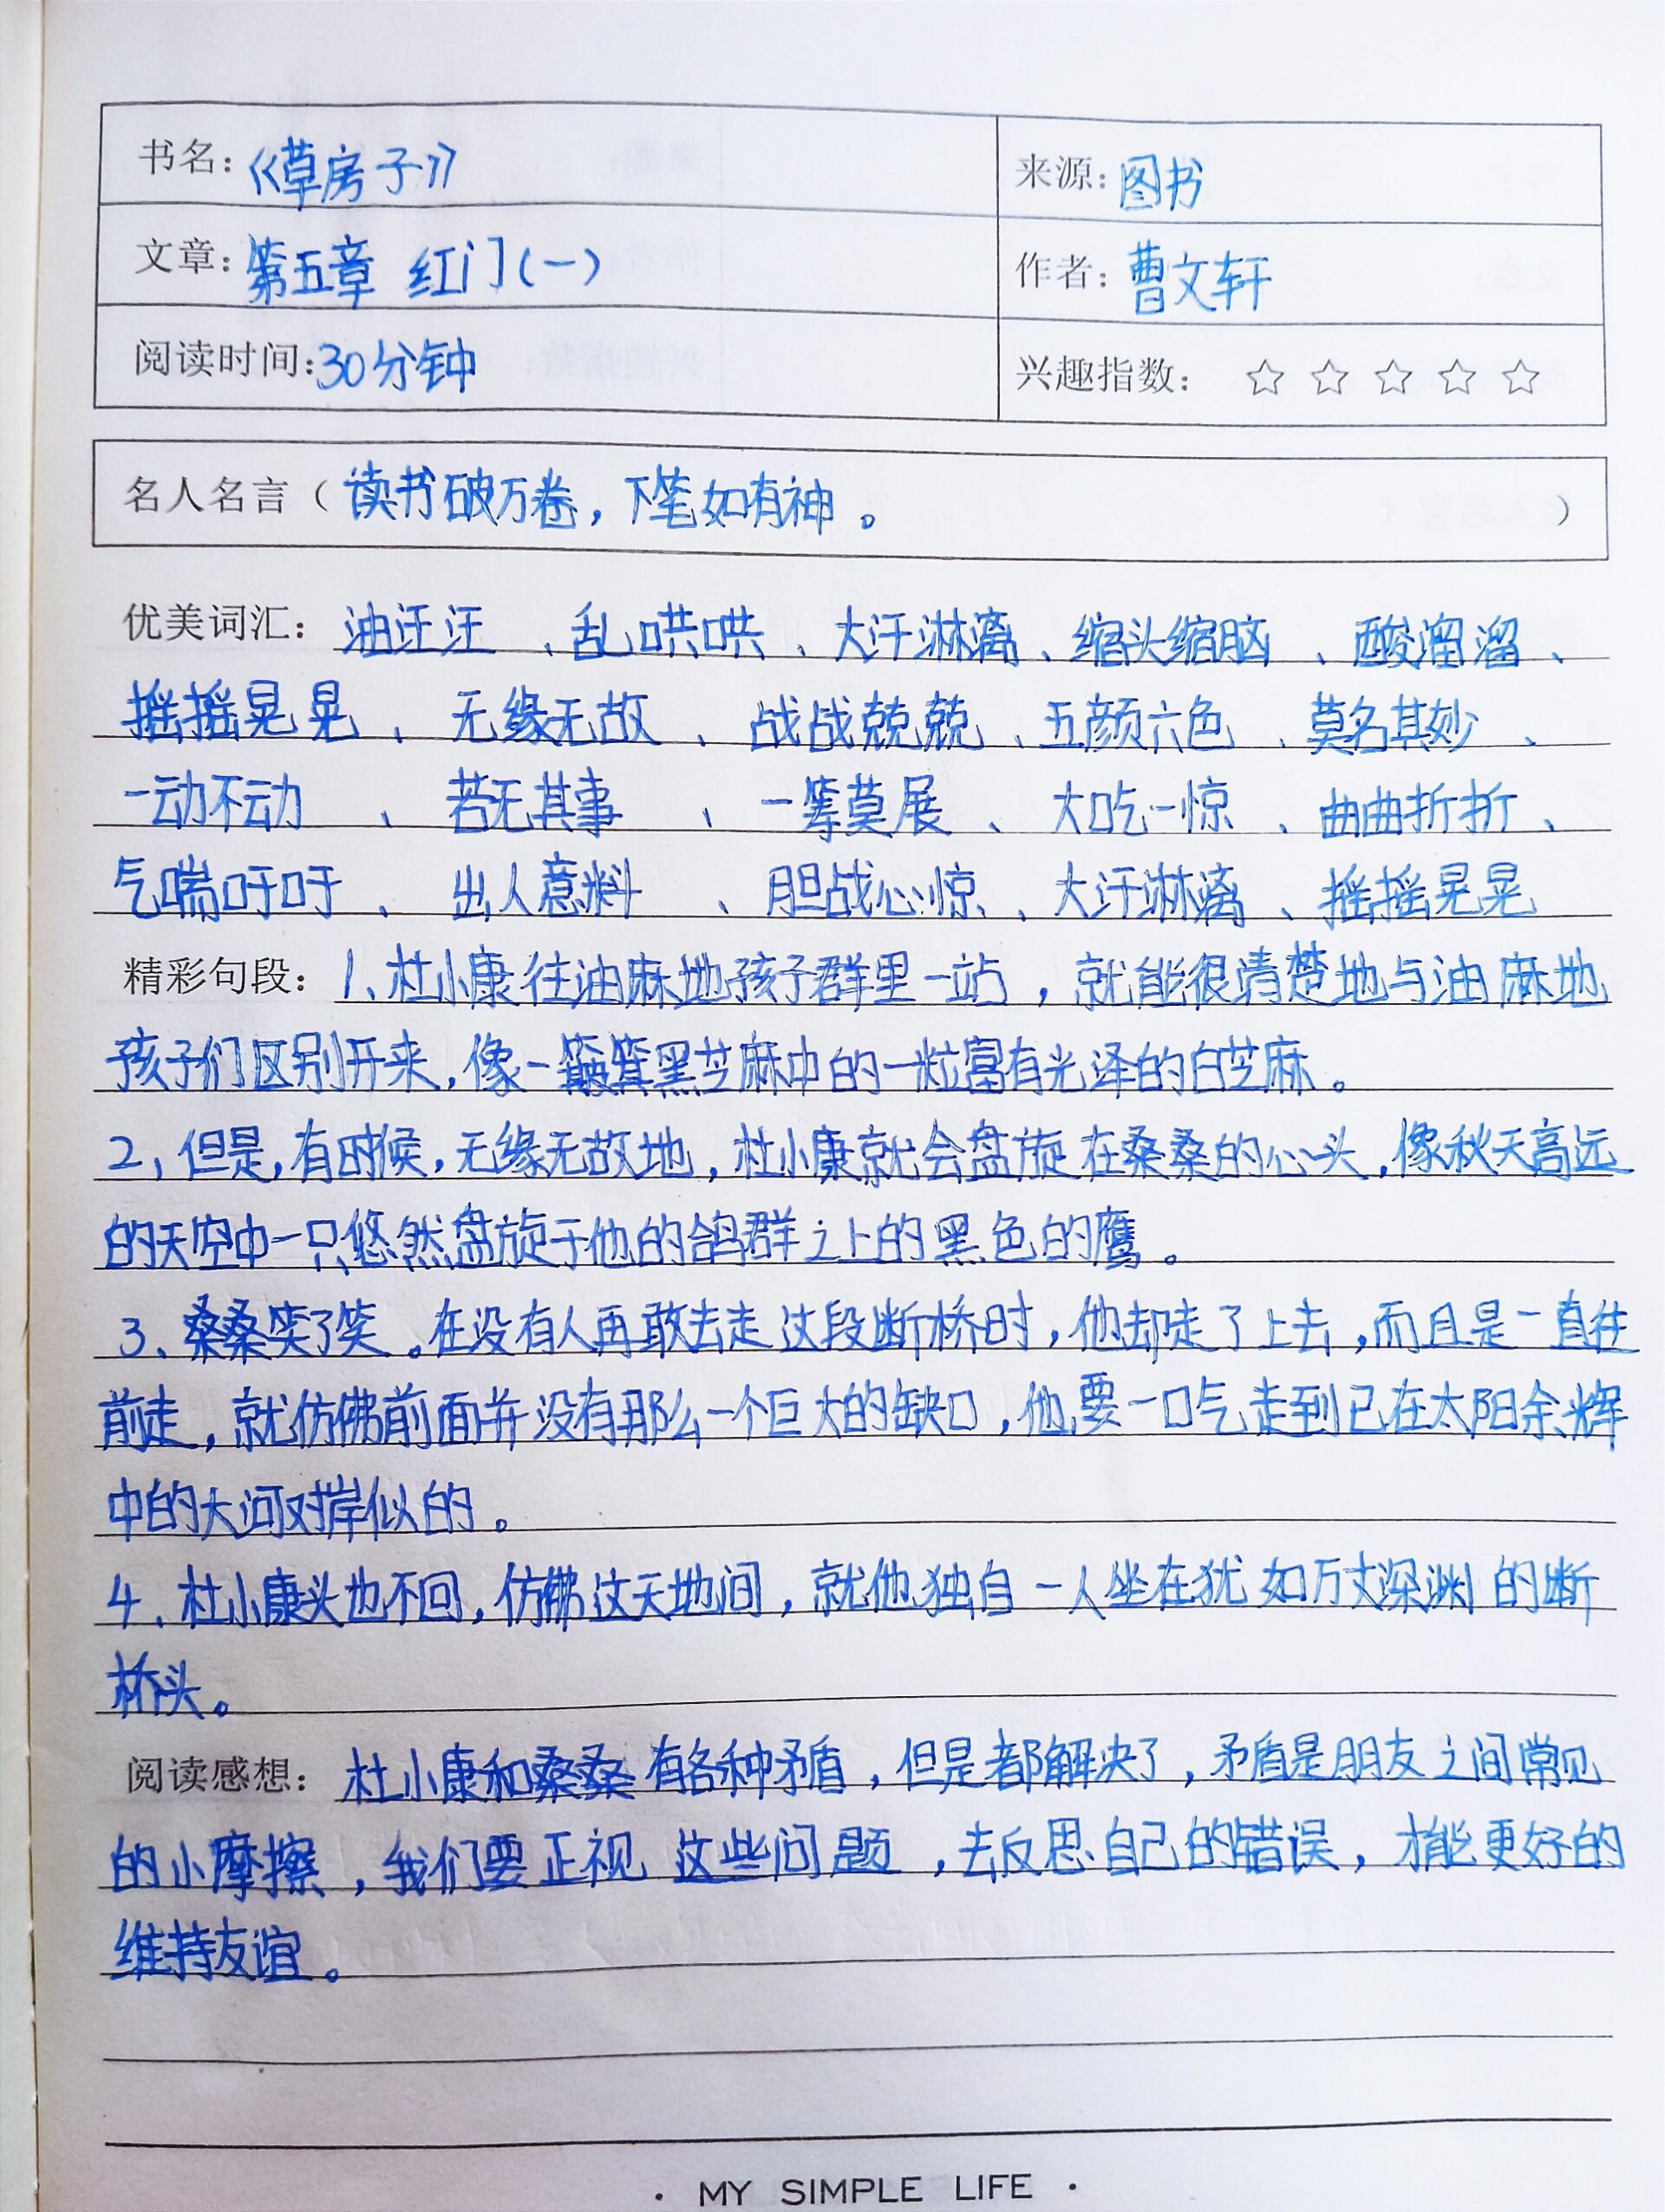 书名：《草房子》 来源：图书
文章：第五章 红门(一) 作者：曹文轩
阅读时间：30分钟 兴趣指数： ☆ ☆ ☆ ☆ ☆
名人名言（读书破万卷，下笔如有神。）
优美词汇：油汪汪、乱哄哄、大汗淋漓、缩头缩脑、酸溜溜、
摇摇晃晃、无缘无故、战战兢兢、五颜六色、莫名其妙、
一动不动、若无其事、一筹莫展、大吃一惊、曲曲折折、
气喘吁吁、出人意料、胆战心惊、大汗淋漓、摇摇晃晃
精彩句段：1、杜小康往油麻地孩子群里一站，就能很清楚地与油麻地
孩子们区别开来，像一簸箕黑芝麻中的一粒富有光泽的白芝麻。
2，但是，有时候，无缘无故地，杜小康就会盘旋在桑桑的心头，像秋天高远
的天空中一只悠然盘旋于他的鸽群之上的黑色的鹰。
3、桑桑笑了笑。在没有人再敢去走这段断桥时，他却走了上去，而且是一直往
前走，就仿佛前面并没有那么一个巨大的缺口，他要一口气走到已在太阳余辉
中的大河对岸似的。
4、杜小康头也不回，仿佛这天地间，就他独自一人坐在犹如万丈深渊的断
桥头。
阅读感想：杜小康和桑桑有各种矛盾，但是都解决了，矛盾是朋友之间常见
的小摩擦，我们要正视这些问题，去反思自己的错误，才能更好的
维持友谊。
· MY SIMPLE LIFE ·